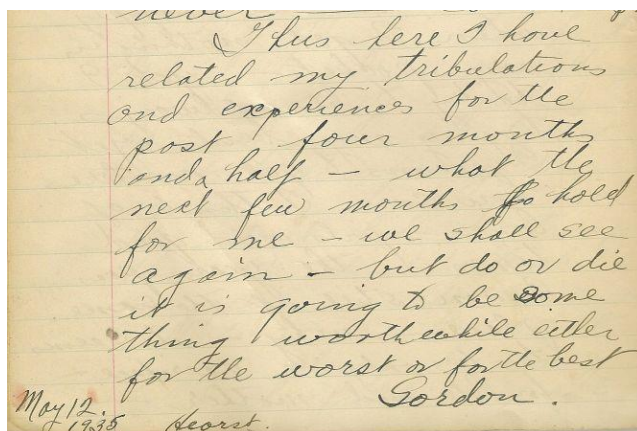 never
Thus here I have
related my tribulations
and experiences for the
past four months
and a half - what the
next few months hold
for me - we shall see
again - but do or die
it is going to be some
thing worthewhile either
for the worst or forthe best
Gordon.
May 12. 1935 Hearst.